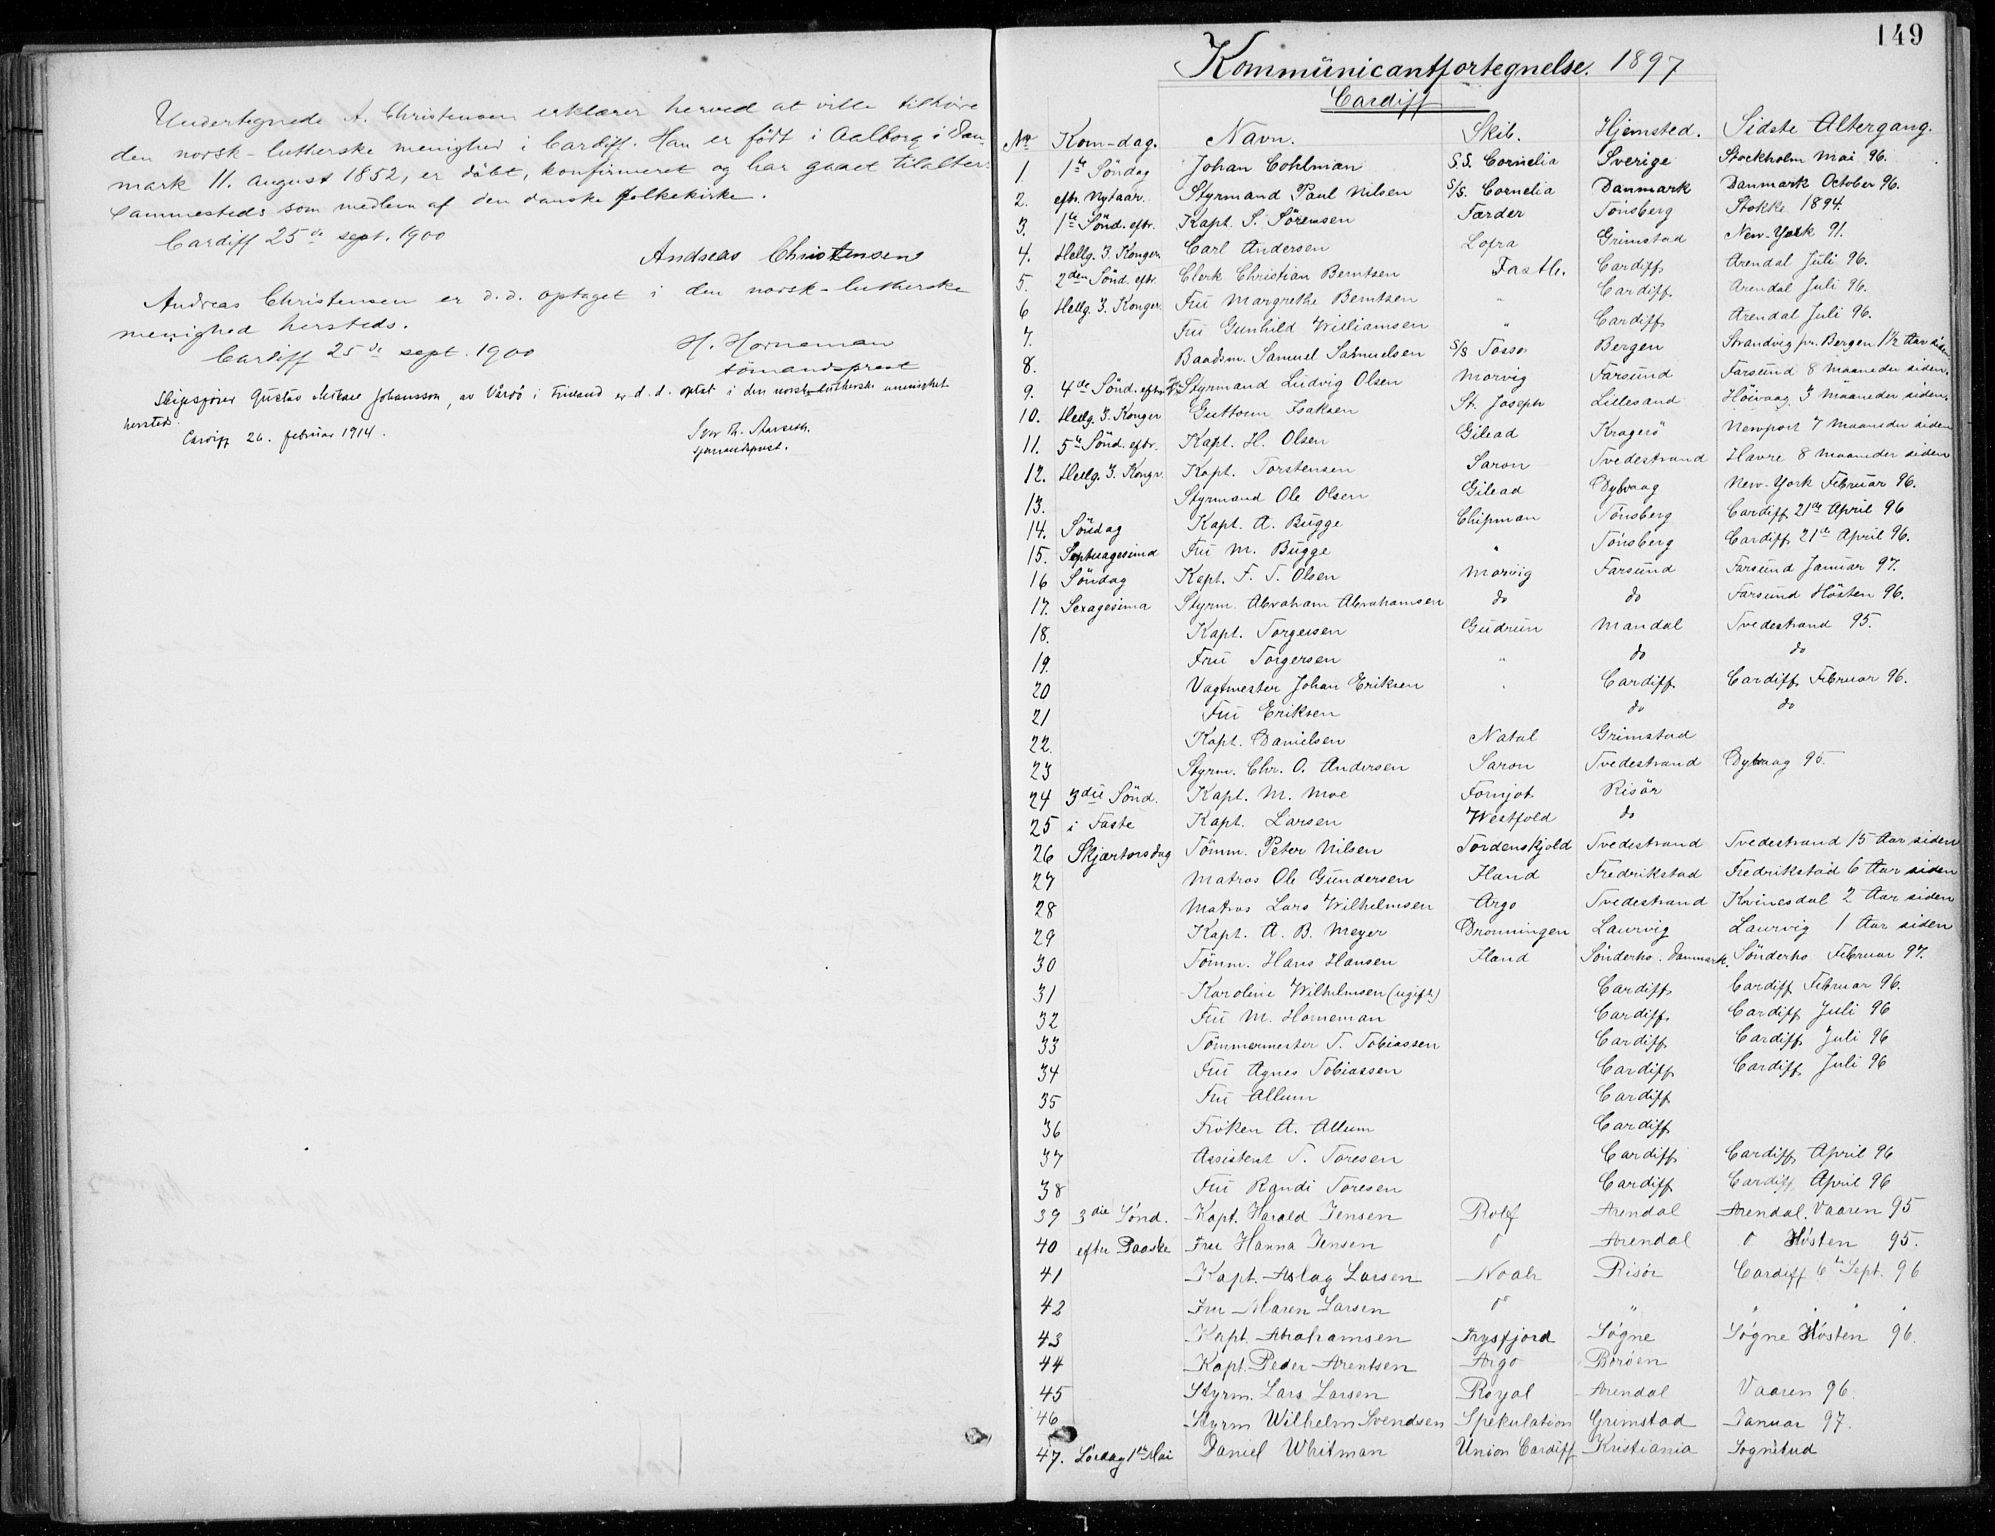 Undertegnede A. Christensen erklærer herved at ville tilhøre
den norsk-lutherske menighed i Cardiff. Han er født i Aalborg i Dan-
mark 11. august 1852, er døbt, konfirmeret og har gaaet tilalter
sammesteds som medlem af den danske folkekirke.
Cardiff 25de sept. 1900
Andreas Christensen
Andreas Christensen er d.d. optaget i den norsk-lutherske
menighed hersteds.
Cardiff 25de sept. 1900
H. Horneman
sømandsprest
Skipsfører Gustav Mikael Johansson, av Vårdö i Finland er d.d. optat i den norsk-lutherske menighet
hersteds.
Cardiff 26. februar 1914.
sjømandsprest.
149
Kommünicantfortegnelse. 1897
Cardiff
No. Kom-dag. Navn. Skib. Hjemsted. Sidste Altergang.
1 1ste Söndag Johan Cohlman S.S. Cornelia Sverige Stockholm Mai 96.
2. eftr. Nytaar. Styrmand Paul Nilsen S/S. Cornelia Danmark Danmark October 96.
3. 1ste Sönd. eftr. Kapt. S. Sörensen Færder Tönsberg Stokke 1894.
4. Hellg. 3. Konger Carl Andersen Lofra Grimstad New-York 91.
5. 2den Sönd. eftr. Clerk Christian Berntsen Fastl. Cardiff Arendal Juli 96.
6 Hellg. 3. Konger Frü Margrethe Berntsen " Cardiff Arendal Juli 96.
7. Frü Gunhild Williamsen " Cardiff Arendal Juli 96.
8. Baadsm. Samuel Samuelsen S/S Tosso Bergen Strandvig pr. Bergen 1½ Aar siden.
9. 4de Sönd. eftr. Styrmand Ludvig Olsen Morvig Farsund Farsund 8 maaneder siden.
10. Hellg. 3. Konger Guttorm Isaksen St. Joseph Lillesand Höivaag 3 maaneder siden.
11. 5te Sönd. eftr. Kapt. H. Olsen Gilead Kragerö Newport 7 maaneder siden
12. Hellg. 3. Kongr. Kapt. Torstensen Saron Tvedestrand Havre 8 maaneder siden
13. Styrmand Ole Olsen Gilead Dybvaag New-York Februar 96.
14. Söndag Kapt. A. Bugge Chipman Tönsberg Cardiff 21de April 96
15. Septuagesima Frü M. Bügge " Tönsberg Cardiff 21de April 96.
16 Söndag Kapt. F. T. Olsen Morvig Farsund Farsund Januar 97.
17. Sexagesima Styrm. Abraham Abrahamsen do do Farsund Hösten 96.
18. Kapt. Torgersen Gudrun Mandal Tvedestrand 95.
19. Frü Torgersen " do do
20 Vagtmester Johan Eriksen " Cardiff Cardiff Februar 96.
21 Frü Eriksen do do
22. Kapt. Danielsen Natal Grimstad
23 Styrm. Chr. O. Andersen Saron Tvedestrand Dybvaag 95.
24 3die Sönd. Kapt. M. Moe Fornjot Risör
25 i Faste Kapt. Larsen Westfold do
26 Skjærtorsdag Tömm. Peter Nilsen Tordenskjold Tvedestrand Tvedestrand 15 Aar siden
27 Matros Ole Gundersen Hand Fredrikstad Fredrikstad 6 Aar siden
28 Matros Lars Wilhelmsen Argo Tvedestrand Kvinesdal 2 Aar siden
29 Kapt. A. B. Meyer Dronningen Laurvig Laurvig 1 Aar siden
30 Tömm. Hans Hansen Hand Sönderho. Danmark. Sönderho Februar 97.
31 Karoline Wilhelmsen (ugift) Cardiff Cardiff Februar 96.
32 Frü M. Horneman Cardiff Cardiff Juli 96
33 Tömmermester T. Tobiassen Cardiff Cardiff Juli 96
34 Frü Agnes Tobiassen Cardiff Cardiff Juli 96
35 Frü Allum Cardiff
36 Fröken A. Allum Cardiff
37 Assistent T. Toresen Cardiff Cardiff April 96
38 Frü Randi Toresen Cardiff Cardiff April 96
39 3die Sønd. Kapt. Harald Jensen Rolf Arendal Arendal. Vaaren 95
40 efter Paaske Fru Hanna Jensen Arendal Høsten 95.
41 Kapt. Aslag Larsen Noah Risør Cardiff 6te Sept. 96
42 Fru Maren Larsen " " " "
43 Kapt. Abrahamsen Trysfjord Søgne Søgne Høsten 96.
44 Kapt. Peder Arentsen Argo Borøen
45 Styrm. Lars Larsen Royal Arendal Vaaren 96.
46 Styrm Wilhelm Svendsen Spekulation Grimstad Januar 97.
47. Lördag 1ste Mai Daniel Whitman Union Cardiff Kristiania Sognebud